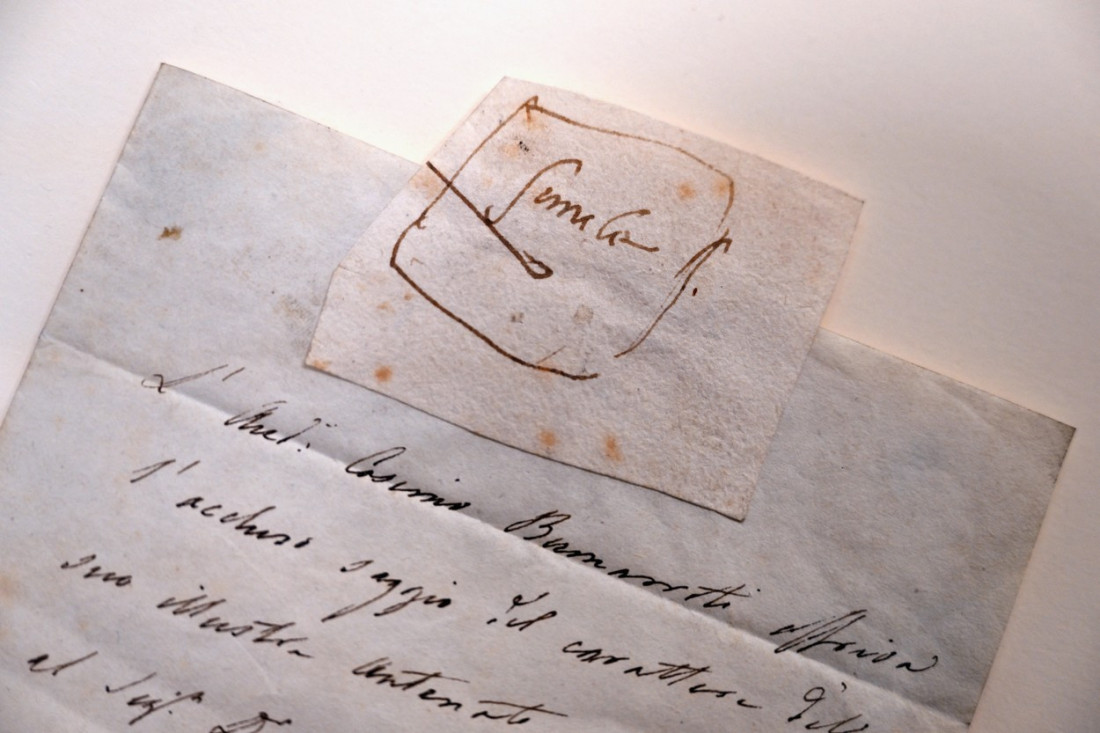 Simile
L'
Aud: Cosimo Buonarroti offriva
l'accluso saggio del carattere dell
suo illustre antenato
al Sig.